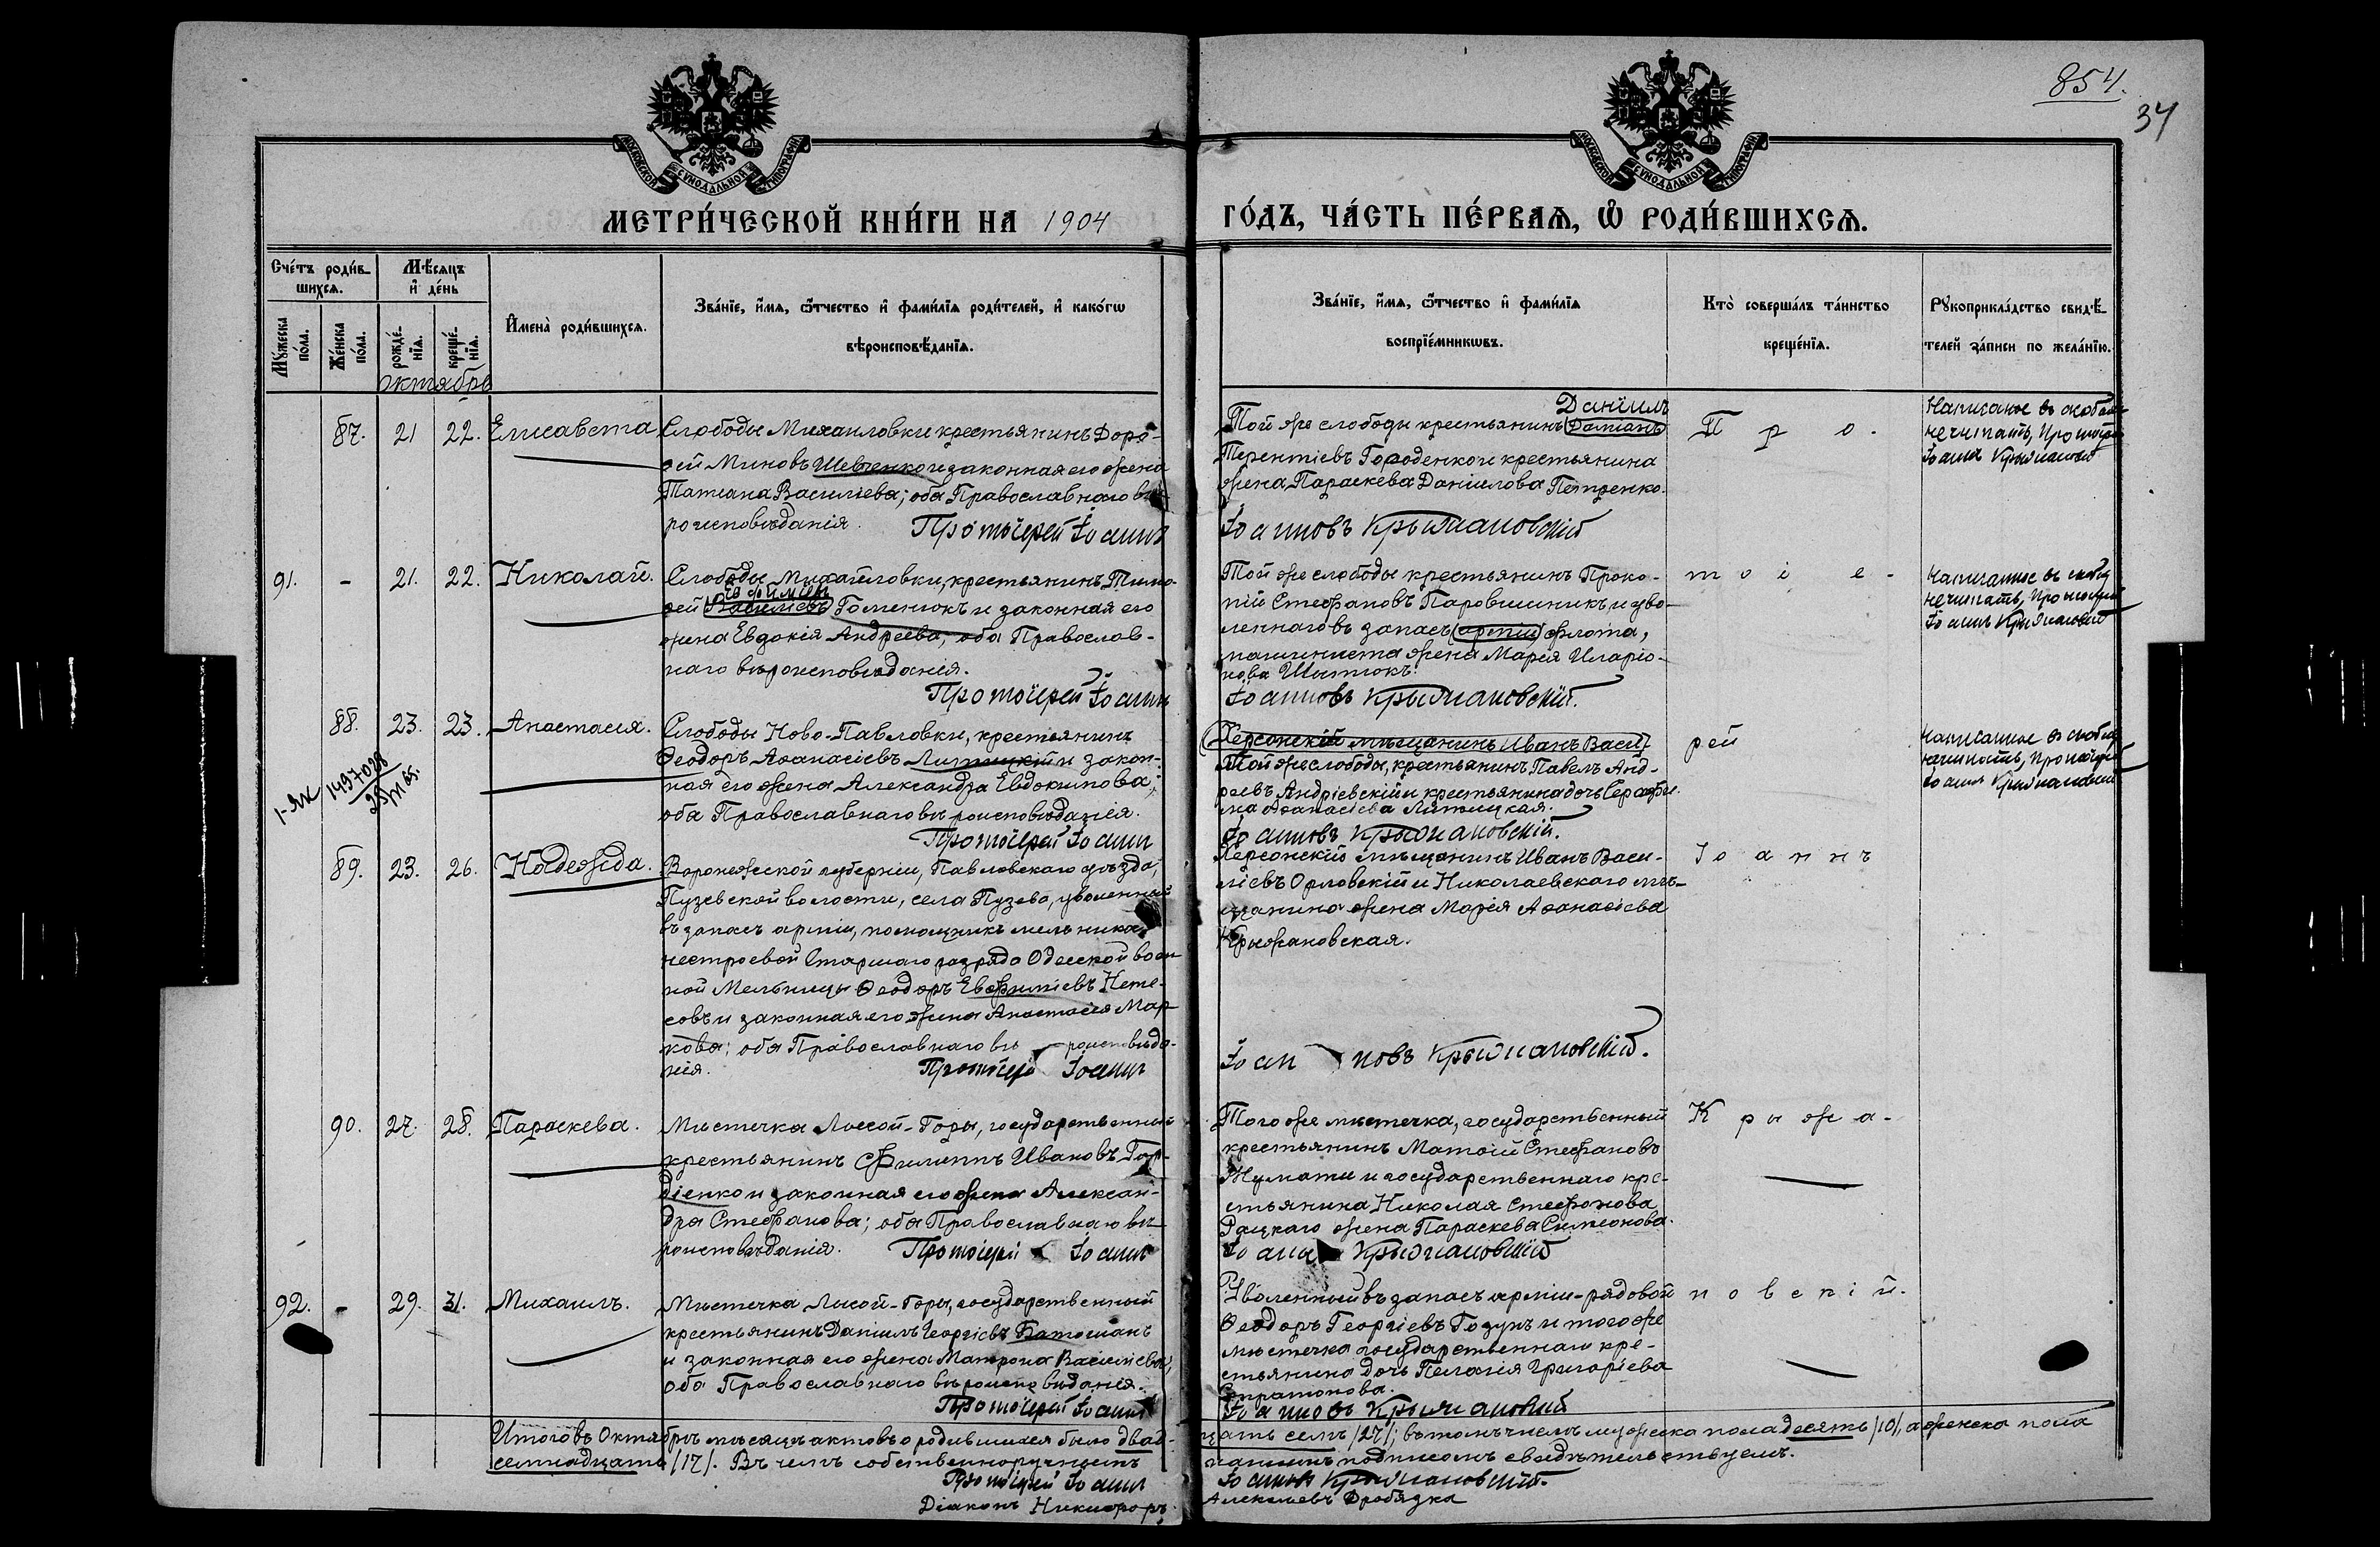 854.
34
МОСКОВСКОЙ СѴНОДАЛЬНОЙ ТИПОГРАФІИ
МОСКОВСКОЙ СѴНОДАЛЬНОЙ ТИПОГРАФІИ
МЕТРИ́ЧЕСКОЙ КНИ́ГИ НА 1904 ГО́ДЪ, ЧА́СТЬ ПЕ́РВАѦ, Ѡ҆ РОДИ́ВШИХСѦ.
Сче́тъ роди́в-
шихсѧ.
Мꙋ́жеска по́ла.
Же́нска по́ла.
Мѣ́сяцъ
и҆ де́нь
рожде́-
нїѧ.
креще́-
нїѧ.
октябрь
И҆мена̀ роди́вшихсѧ.
Зва́нїе, и҆́мѧ, ѻ҆́тчество и҆ фами́лїѧ роди́телей, и҆ како́гѡ
вѣроисповѣ́данїѧ.
Зва́нїе, и҆́мѧ, ѻ҆́тчество и҆ фами́лїѧ
воспрїе́мникѡвъ.
Кто̀ соверша́лъ та́инство
креще́нїѧ.
Рꙋкоприкла́дство свидѣ́-
телей за́писи по жела́нїю.
87. 21 22. Елисавета
Слободы Михаиловки крестьянинъ Доро-
ѳей Миновъ Шевченко и законная его жена
Татиана Василіева; оба Православнаго вѣ-
роисповѣданія. Протоіерей Іоаннъ
Даніилъ
Той же слободы крестьянинъ (Даміанъ)
Терентіевъ Городенко и крестьянина
жена Параскева Даніилова Петренко.
Іоанновъ Крыжановскій
П р о -
Написанное въ скобкахъ
не читать, Протоіерей
Іоаннъ Крыжановскій
91. - 21. 22. Николай.
Слободы Михайловки, крестьянинъ Тимо-
Евфиміевъ
ѳей (Василіевъ) Гоменюкъ и законная его
жена Евдокія Андреева; оба Православ-
наго вѣроисповѣданія.
Протоіерей Іоаннъ
Той же слободы крестьянинъ Проко-
пій Стефановъ Паровишникъ, и уво-
леннаго въ запасъ (арміи) флота,
машиниста жена Марія Иларіо-
нова
Іоанновъ Крыжановскій.
т о і е -
Написанное въ скобкахъ
не читать, Протоіерей
Іоаннъ Крыжановскій
88. 23. 23. Анастасія.
1497028
Слободы Ново-Павловки, крестьянинъ
Ѳеодоръ Аѳанасіевъ Литицкій и закон-
ная его жена Александра Евдокимова;
оба Православнаго вѣроисповѣданія.
Протоіерей Іоаннъ
(Херсонскій мѣщанинъ Иванъ Васи)
Той же слободы, крестьянинъ Павелъ Анд-
реевъ Андріевскій и крестьянина дочь Серафи-
ма Аѳанасіева Литицкая.
Іоанновъ Крыжановскій.
рей
Написанное въ скобкахъ
не читать, Протоіерей
Іоаннъ Крыжановскій
89. 23. 26. Надежда.
Воронежской губерніи, Павловскаго уѣзда,
Пузевской волости, села Пузева, уволенный
въ запасъ арміи, помощникъ мельника,
нестроевой Старшаго разряда Одесской воен-
ной Мельницы Ѳеодоръ Евфиміевъ
совъ и законная его жена Анастасія Мар-
кова; оба Православнаго вѣроисповѣда-
нія. Протоіерей Іоаннъ
Херсонскій мѣщанинъ Иванъ Васи-
ліевъ Орловскій и Николаевскаго мѣ-
щанина жена Марія Аѳанасіева
Крыжановская.
Іоанновъ Крыжановскій.
І о а н н ъ
90. 27. 28. Параскева.
Мѣстечка Лысой-Горы, государственный
крестьянинъ Филиппъ Ивановъ Гор-
діенко и законная его жена Алексан-
дра Стефанова; оба Православнаго вѣ-
роисповѣданія. Протоіерей Іоаннъ
Того же мѣстечка, государственный
крестьянинъ Матѳій Стефановъ
и государственнаго кре-
стьянина Николая Стефанова
Рацкаго жена Параскева Симеонова.
Іоанновъ Крыжановскій
К р ы ж а -
92. - 29. 31. Михаилъ.
Мѣстечка Лысой-Горы, государственный
крестьянинъ Даніилъ Георгіевъ Батошанъ
и законная его жена Матрона Василіева;
оба Православнаго вѣроисповѣданія.
Протоіерей Іоаннъ
Уволенный въ запасъ арміи - рядовой
Ѳеодоръ Георгіевъ Годунъ и того же
мѣстечка государственнаго кре-
стьянина дочь Пелагія Григоріева
Іоанновъ Крыжановскій
н о в с к і й.
Итого въ Октябрѣ мѣсяцѣ актовъ о родившихся было двад-цать семь /27/; въ томъ числѣ мужеска пола десять /10/, а женска пола
семнадцать /17/. Въ чемъ собственноручнымъ нашимъ подписомъ свидѣтельствуемъ.
Протоіерей Іоаннъ Іоанновъ Крыжановскій.
Діаконъ Никифоръ Алексіевъ Дробязка